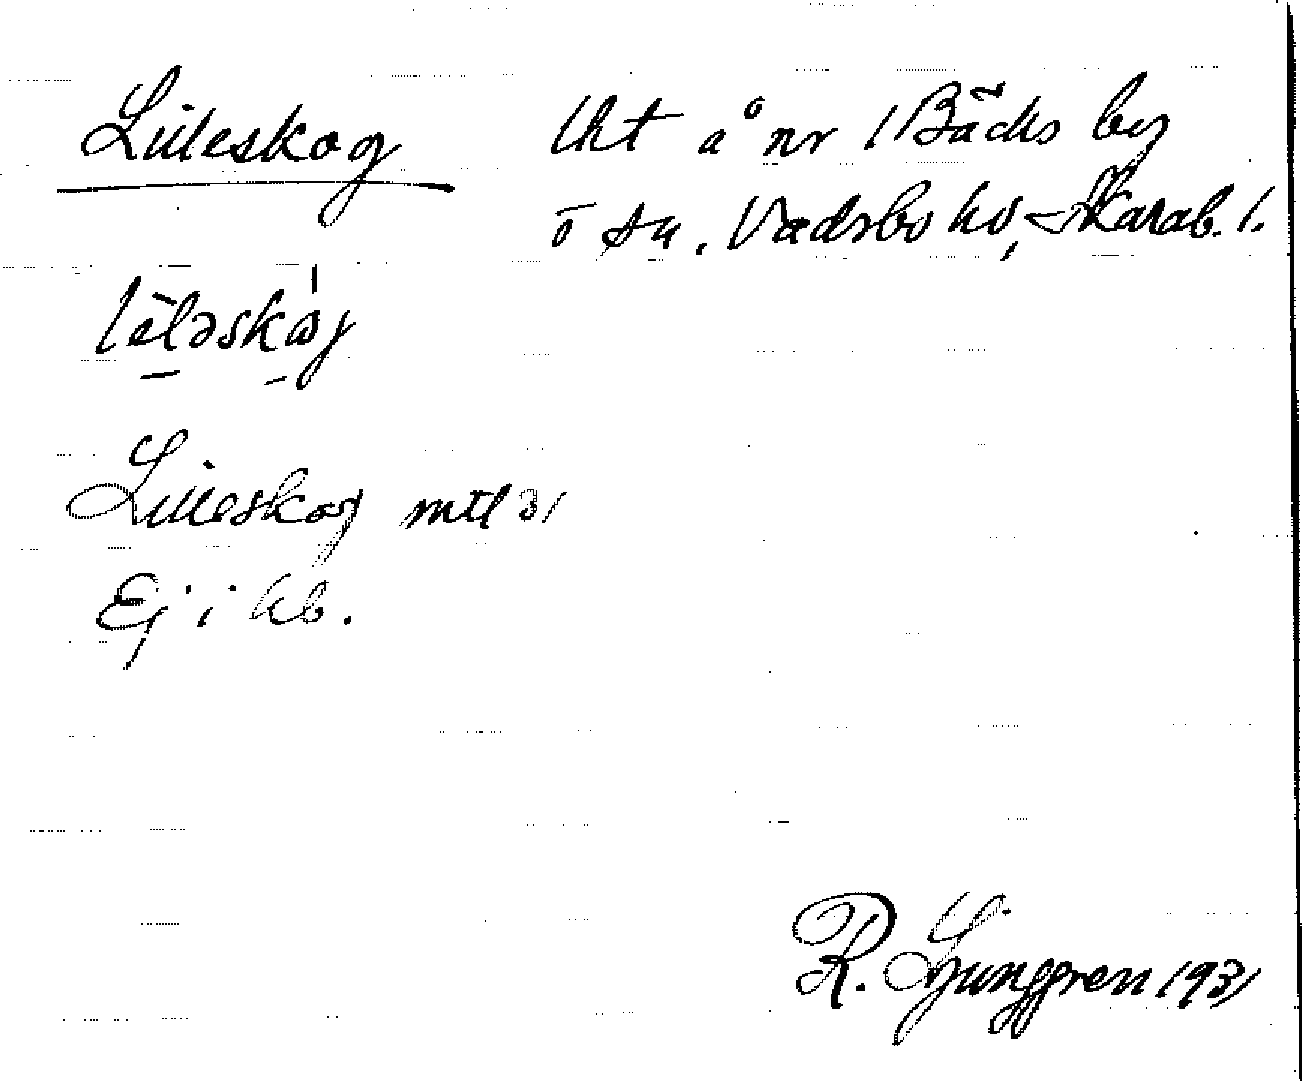 Lilleskog
lht å nr 1 Bäcks by
ö sn. Vadsbo hd, Skarab. l.
lìlǝskòg
Lilleskog mtl 31
Ej i kb.
R. Ljunggren 1931